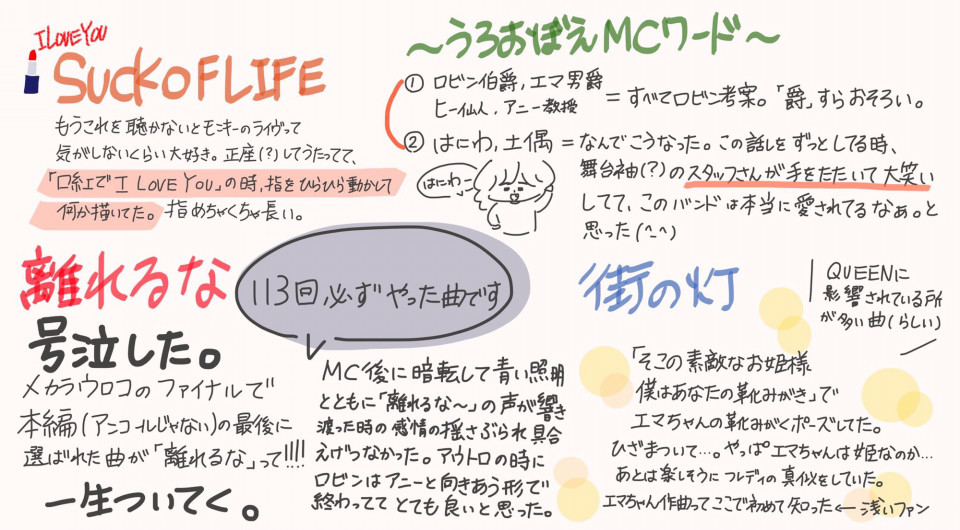 I LOVE YOU
SUCK OF LIFE
もうこれを聴かないとモンキーのライヴって
気がしないくらい大好き。正座(?)してうたってて、
「口紅で I LOVE YOU」の時,指をひらひら動かして
何か描いてた。指めちゃくちゃ長い。
〜うろおぼえMCワード〜
① ロビン伯爵,エマ男爵
ヒー仙人,アニー教授
=すべてロビン考案。「爵」すらおそろい。
② はにわ,土偶=なんでこうなった。この話しをずっとしてる時、
舞台袖(?)のスタッフさんが手をたたいて大笑い
してて、このバンドは本当に愛されてるなぁ。と
思った(^_^)
はにわー
離れるな
113回必ずやった曲です
号泣した。
メカラウロコのファイナルで
本編(アンコールじゃない)の最後に
選ばれた曲が「離れるな」って!!!!
一生ついてく。
MC後に暗転して青い照明
とともに「離れるな〜」の声が響き
渡った時の感情の揺さぶられ具合
えげつなかった。アウトロの時に
ロビンはアニーと向きあう形で
終わっててとても良いと思った。
街の灯
QUEENに
影響されている所
が多い曲(らしい)
「そこの素敵なお姫様
僕はあなたの靴みがき」で
エマちゃんの靴みがくポーズしてた。
ひざまついて…。やっぱエマちゃんは姫なのか…
あとは楽しそうにフレディの真似をしていた。
エマちゃん作曲ってここで初めて知った←浅いファン